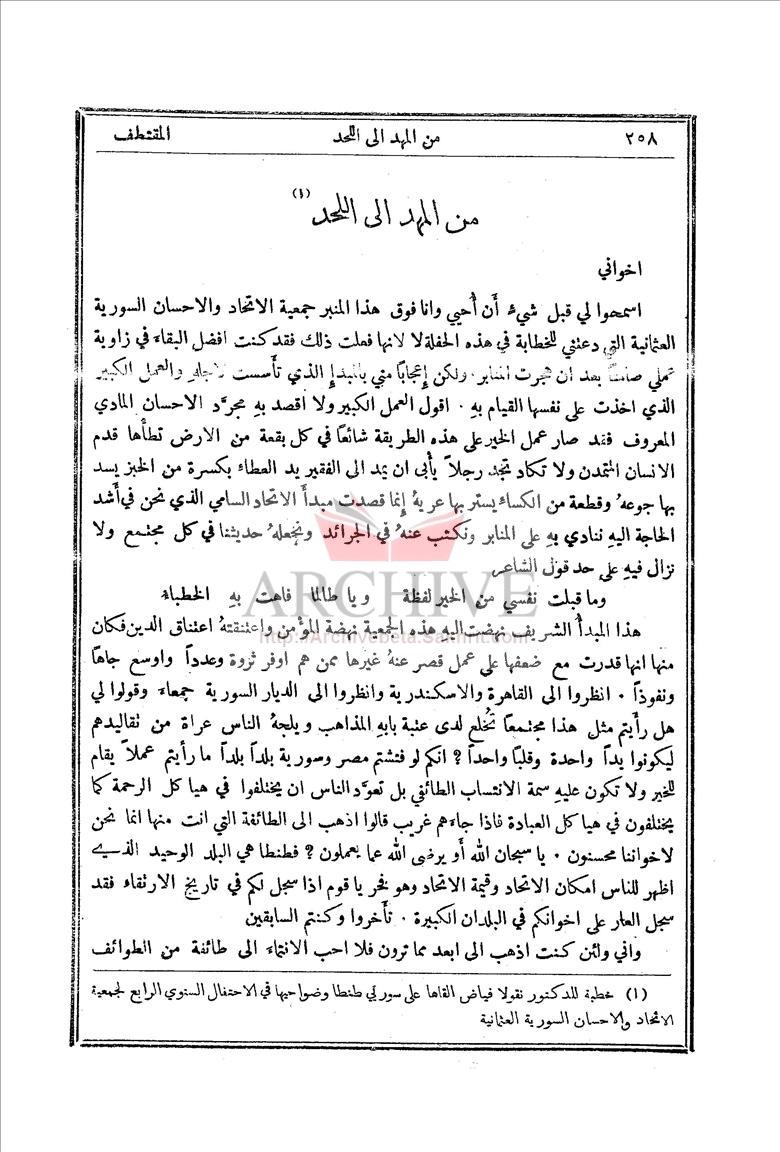 ٢٥٨ من المهد الى اللحد المقتطف
من المهد الى اللحد (١)
اخواني
اسمحوا لي قبل شيءٍ أَن أُحيي وانا فوق هذا المنبر جمعية الاتحاد والاحسان السورية
العثمانية التي دعتني للخطابة في هذه الحفلة لا لانها فعلت ذلك فقد كنت افضل البقاءَ في زاوية
عملي صامتًا بعد ان هجرت المنابر. ولكن إِعجابًا مني بالمبدإِ الذي تأَسست لاجلهِ والعمل الكبير
الذي اخذت على نفسها القيام بهِ . اقول العمل الكبير ولا اقصد بهِ مجرَّد الاحسان المادي
المعروف فقد صار عمل الخير على هذه الطريقة شائعًا في كل بقعة من الارض تطأُها قدم
الانسان المتمدن ولا تكاد تجد رجلاً يأْبى ان يمد الى الفقير يد العطاءِ بكسرة من الخبز يسد
بها جوعهُ وقطعة من الكساءِ يستر بها عريهُ إِنما قصدت مبدأَ الاتحاد السامي الذي نحن في أَشد
الحاجة اليهِ ننادي بهِ على المنابر ونكتب عنهُ في الجرائد ونجعلهُ حديثنا في كل مجتمع ولا
نزال فيهِ على حد قول الشاعر
وما قبلت نفسي من الخير لفظة ويا طالما فاهت بهِ الخطباءُ
ARCHIVE
هذا المبدأُ الشريف نهضت اليهِ هذه الجمعية نهضة المؤْمن واعتنقتهُ اعتناق الدين فكان
http://Archivebeta.Sakhrit.com
منها انها قدرت مع ضعفها على عمل قصر عنهُ غيرها ممن هم اوفر ثروة وعدداً واوسع جاهاً
ونفوذاً . انظروا الى القاهرة والاسكندرية وانظروا الى الديار السورية جمعاءَ وقولوا لي
هل رأَيتم مثل هذا مجتمعاً تُخلع لدى عتبة بابهِ المذاهب ويلجهُ الناس عراة من تقاليدهم
ليكونوا يداً واحدة وقلبًا واحداً ? انكم لو فتشتم مصر وسورية بلداً بلداً ما رأيتم عملاً يقام
للخير ولا تكون عليهِ سمة الانتساب الطائفي بل تعوَّد الناس ان يختلفوا في هياكل الرحمة كما
يختلفون في هياكل العبادة فاذا جاءَهم غريب قالوا اذهب الى الطائفة التي انت منها انما نحن
لاخواننا محسنون . يا سبحان الله أَو يرضى الله عما يعملون ? فطنطا هي البلد الوحيد الذي
اظهر للناس امكان الاتحاد وقيمة الاتحاد وهو فخر يا قوم اذا سجل لكم في تاريخ الارتقاء فقد
سجل العار على اخوانكم في البلدان الكبيرة . تأَخروا وكنتم السابقين
واني ولئن كنت اذهب الى ابعد مما ترون فلا احب الانتماءَ الى طائفة من الطوائف
(١) خطبة للدكتور نقولا فياض القاها على سوريي طنطا وضواحيها في الاحتفال السنوي الرابع لجمعية
الاتحاد والاحسان السورية العثمانية